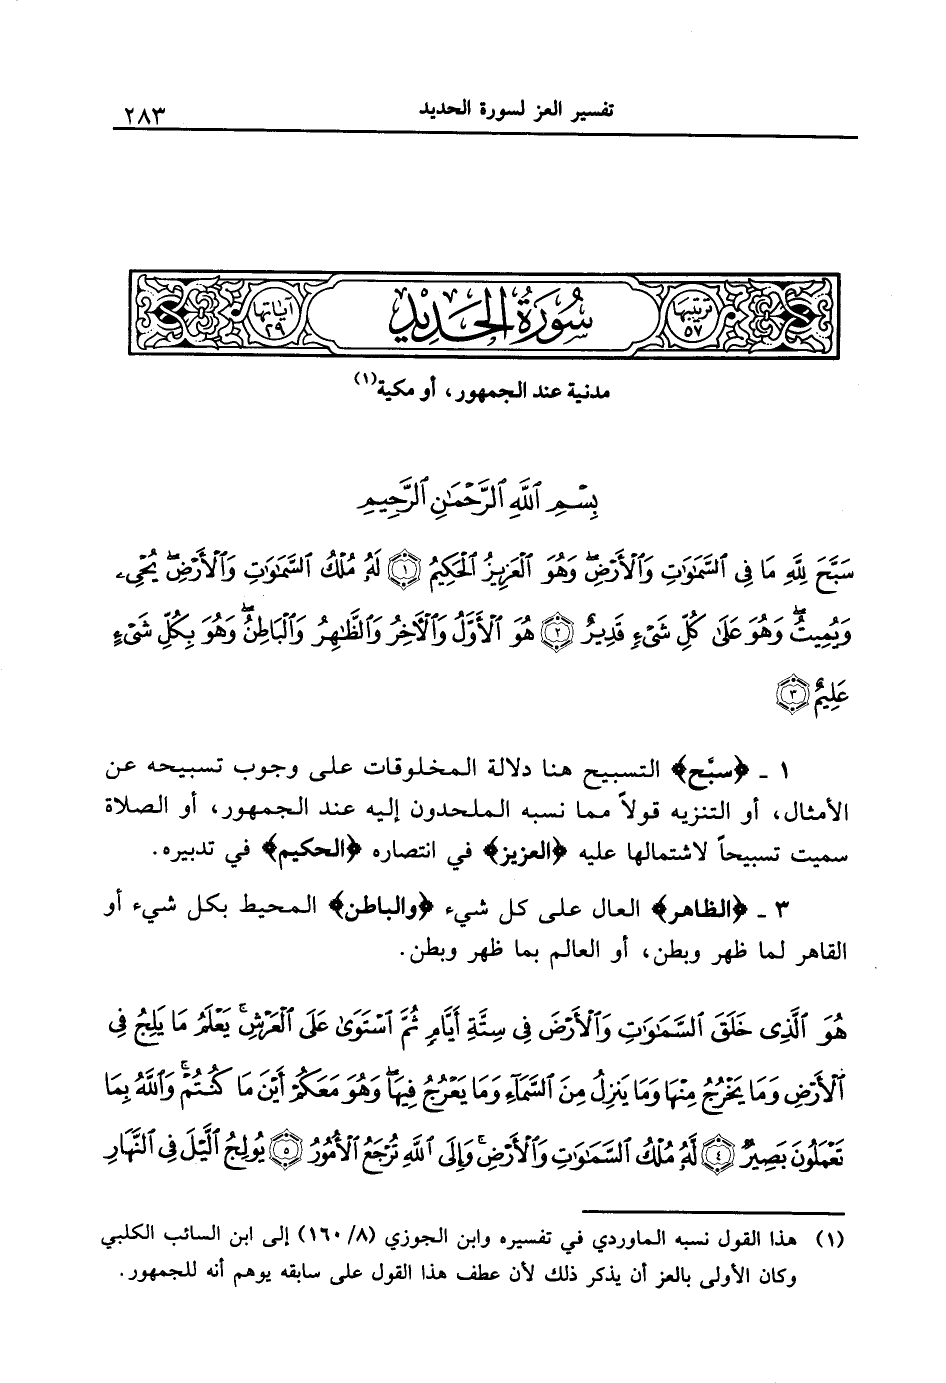 تفسير العز لسورة الحديد
٢٨٣
ترتيبها ٥٧
سُورَةُ الحَدِيدِ
آياتها ٢٩
مدنية عند الجمهور، أو مكية(١)
بِسْمِ ٱللَّهِ ٱلرَّحْمَٰنِ ٱلرَّحِيمِ
سَبَّحَ لِلَّهِ مَا فِى ٱلسَّمَٰوَٰتِ وَٱلْأَرْضِۖ وَهُوَ ٱلْعَزِيزُ ٱلْحَكِيمُ ﴿١﴾ لَهُۥ مُلْكُ ٱلسَّمَٰوَٰتِ وَٱلْأَرْضِۖ يُحْىِۦ
وَيُمِيتُۖ وَهُوَ عَلَىٰ كُلِّ شَىْءٍ قَدِيرٌ ﴿٢﴾ هُوَ ٱلْأَوَّلُ وَٱلْآخِرُ وَٱلظَّٰهِرُ وَٱلْبَاطِنُۖ وَهُوَ بِكُلِّ شَىْءٍ
عَلِيمٌ ﴿٣﴾
١ ـ ﴿سبَّح﴾ التسبيح هنا دلالة المخلوقات على وجوب تسبيحه عن
الأمثال، أو التنزيه قولاً مما نسبه الملحدون إليه عند الجمهور، أو الصلاة
سميت تسبيحاً لاشتمالها عليه ﴿العزيز﴾ في انتصاره ﴿الحكيم﴾ في تدبيره.
٣ ـ ﴿الظاهر﴾ العال على كل شيء ﴿والباطن﴾ المحيط بكل شيء أو
القاهر لما ظهر وبطن، أو العالم بما ظهر وبطن.
هُوَ ٱلَّذِى خَلَقَ ٱلسَّمَٰوَٰتِ وَٱلْأَرْضَ فِى سِتَّةِ أَيَّامٍ ثُمَّ ٱسْتَوَىٰ عَلَى ٱلْعَرْشِۚ يَعْلَمُ مَا يَلِجُ فِى
ٱلْأَرْضِ وَمَا يَخْرُجُ مِنْهَا وَمَا يَنزِلُ مِنَ ٱلسَّمَآءِ وَمَا يَعْرُجُ فِيهَاۖ وَهُوَ مَعَكُمْ أَيْنَ مَا كُنتُمْۚ وَٱللَّهُ بِمَا
تَعْمَلُونَ بَصِيرٌ ﴿٤﴾ لَّهُۥ مُلْكُ ٱلسَّمَٰوَٰتِ وَٱلْأَرْضِۚ وَإِلَى ٱللَّهِ تُرْجَعُ ٱلْأُمُورُ ﴿٥﴾ يُولِجُ ٱلَّيْلَ فِى ٱلنَّهَارِ
(١) هذا القول نسبه الماوردي في تفسيره وابن الجوزي (٨/ ١٦٠) إلى ابن السائب الكلبي
وكان الأولى بالعز أن يذكر ذلك لأن عطف هذا القول على سابقه يوهم أنه للجمهور.